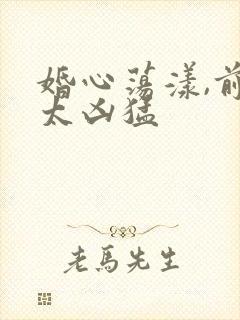 婚心荡漾,前
太凶猛
老馬先生